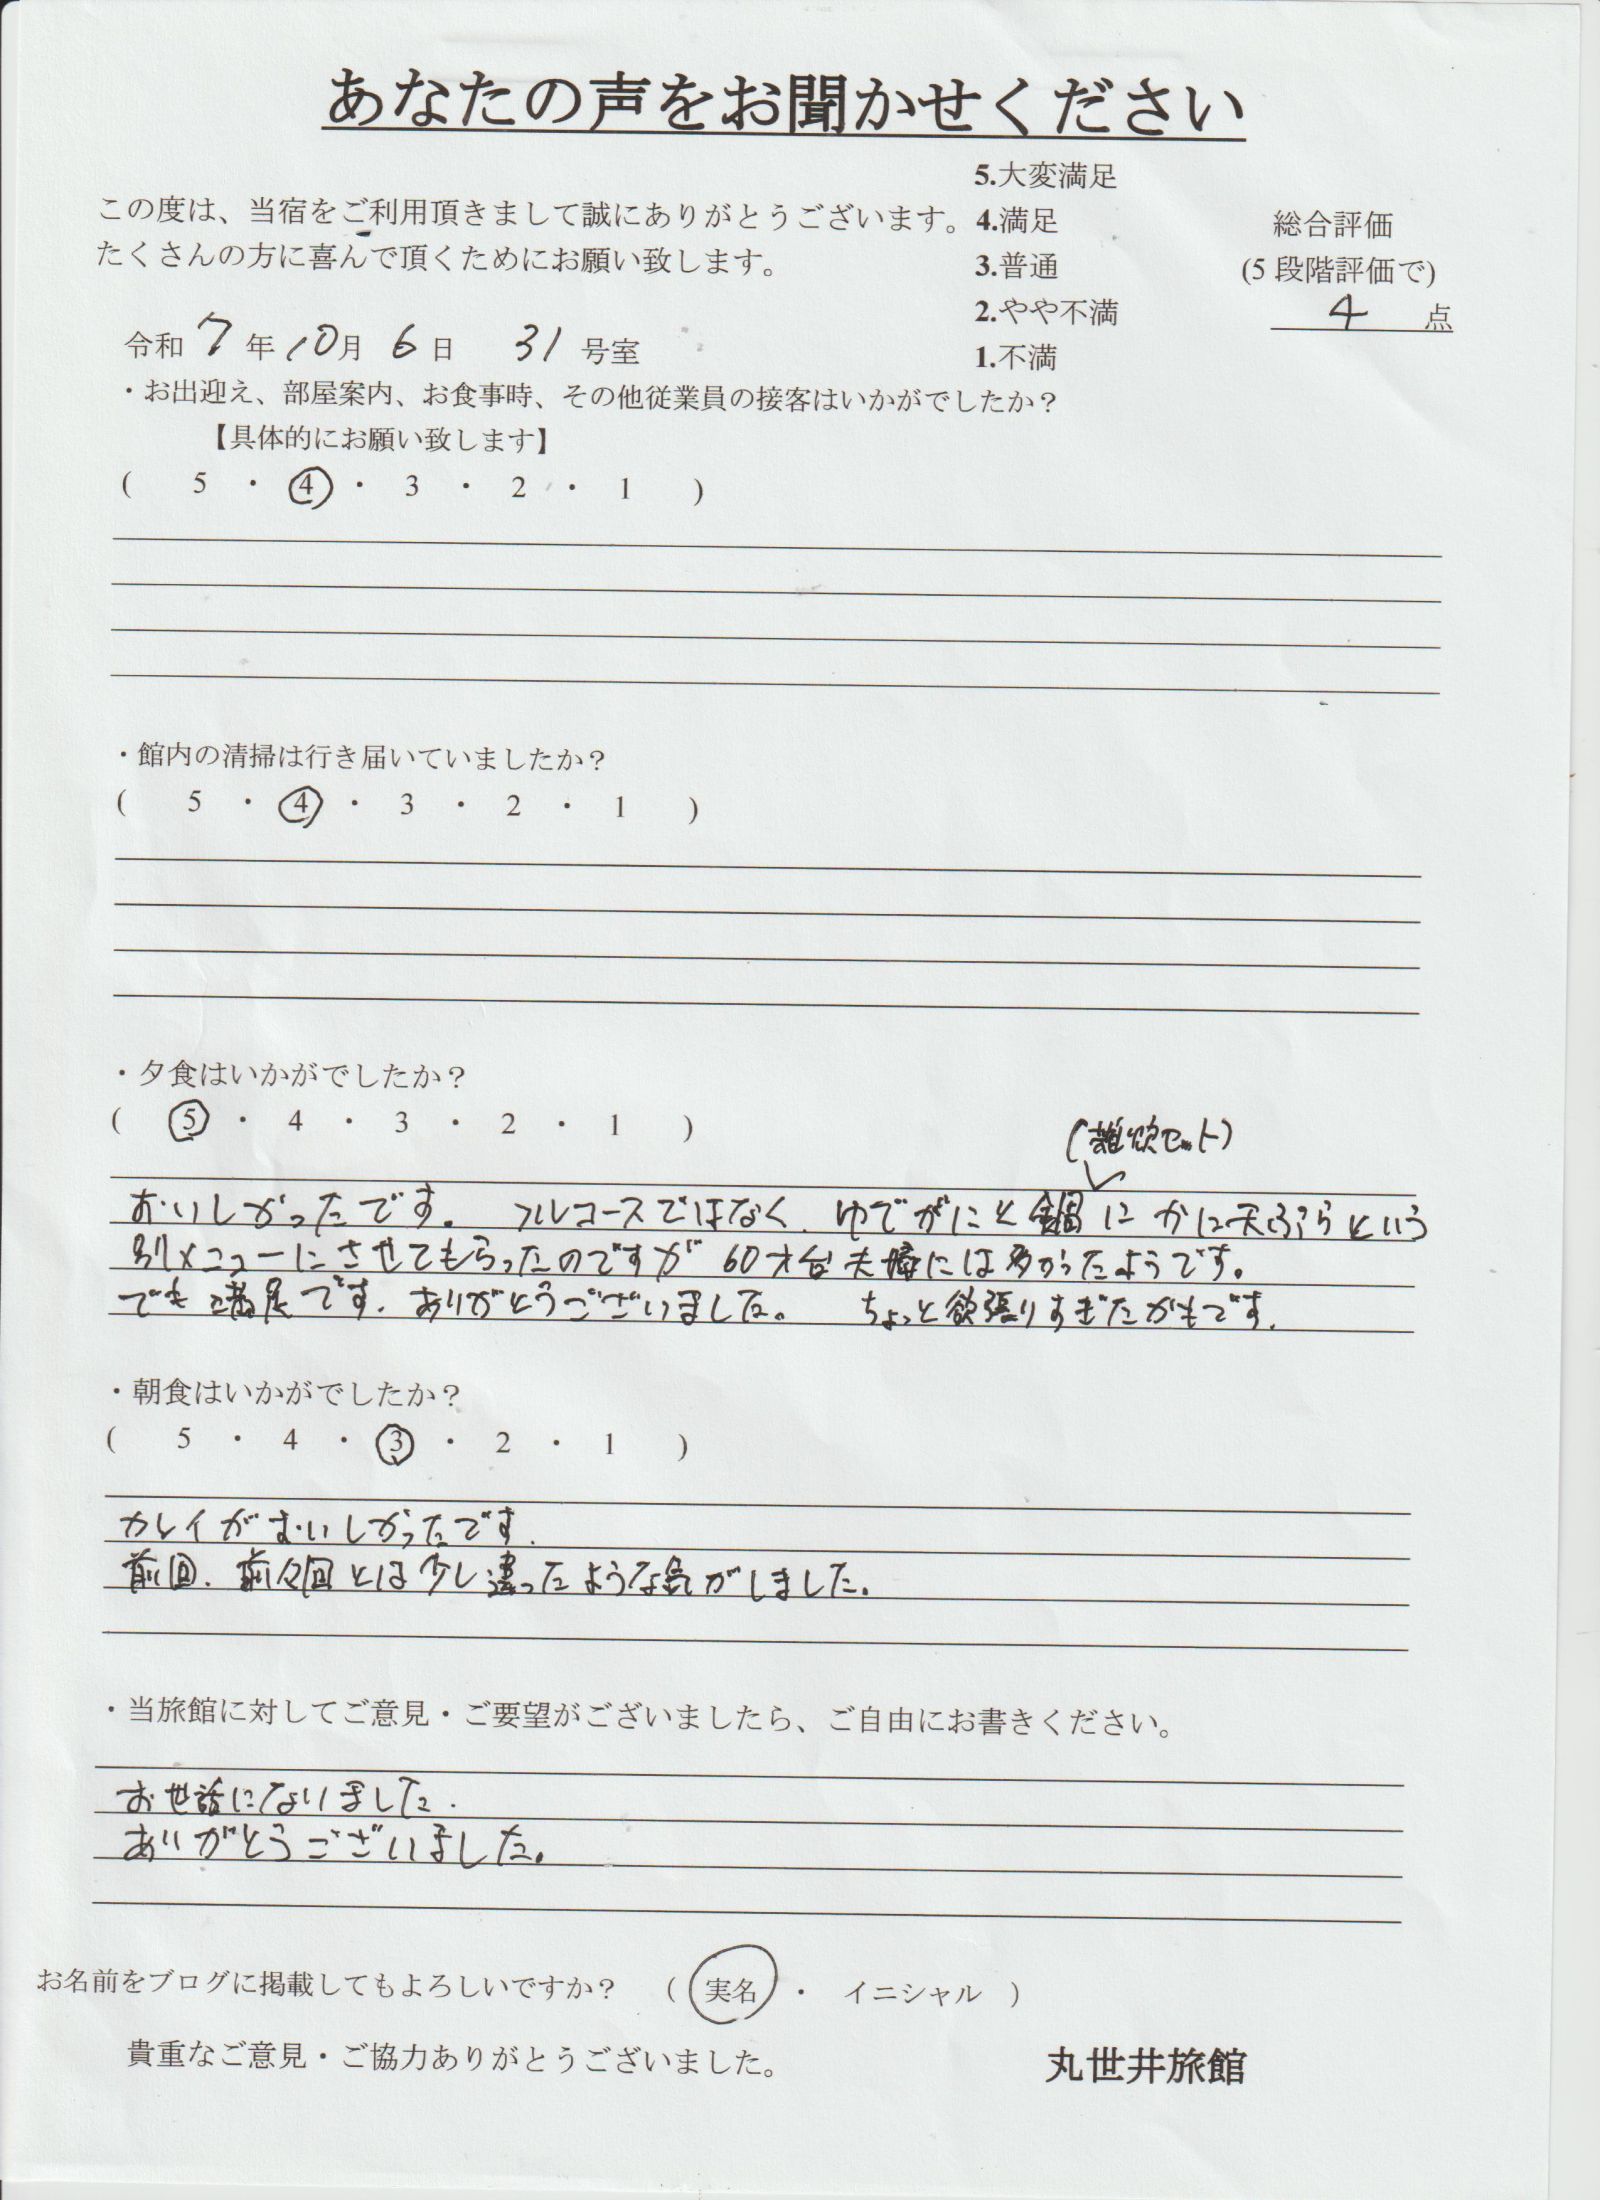 あなたの声をお聞かせください
この度は、当宿をご利用頂きまして誠にありがとうございます。
たくさんの方に喜んで頂くためにお願い致します。
5.大変満足
4.満足
3.普通
2.やや不満
1.不満
総合評価
(5段階評価で)
4 点
令和 7 年 10月 6 日 31 号室
・お出迎え、部屋案内、お食事時、その他従業員の接客はいかがでしたか？
【具体的にお願い致します】
( 5 ・ 4 ・ 3 ・ 2 ・ 1 )
・館内の清掃は行き届いていましたか？
( 5 ・ 4 ・ 3 ・ 2 ・ 1 )
・夕食はいかがでしたか？
( 5 ・ 4 ・ 3 ・ 2 ・ 1 )
(雑炊セット)
おいしかったです。フルコースではなく、ゆでがにと鍋にかに天ぷらという
別メニューにさせてもらったのですが60才台夫婦には多かったようです。
でも満足です。ありがとうございました。 ちょっと欲張りすぎたかもです。
・朝食はいかがでしたか？
( 5 ・ 4 ・ 3 ・ 2 ・ 1 )
カレイがおいしかったです。
前回、前々回とは少し違ったような気がしました。
・当旅館に対してご意見・ご要望がございましたら、ご自由にお書きください。
お世話になりました。
ありがとうございました。
お名前をブログに掲載してもよろしいですか？ ( 実名 ・ イニシャル )
貴重なご意見・ご協力ありがとうございました。
丸世井旅館